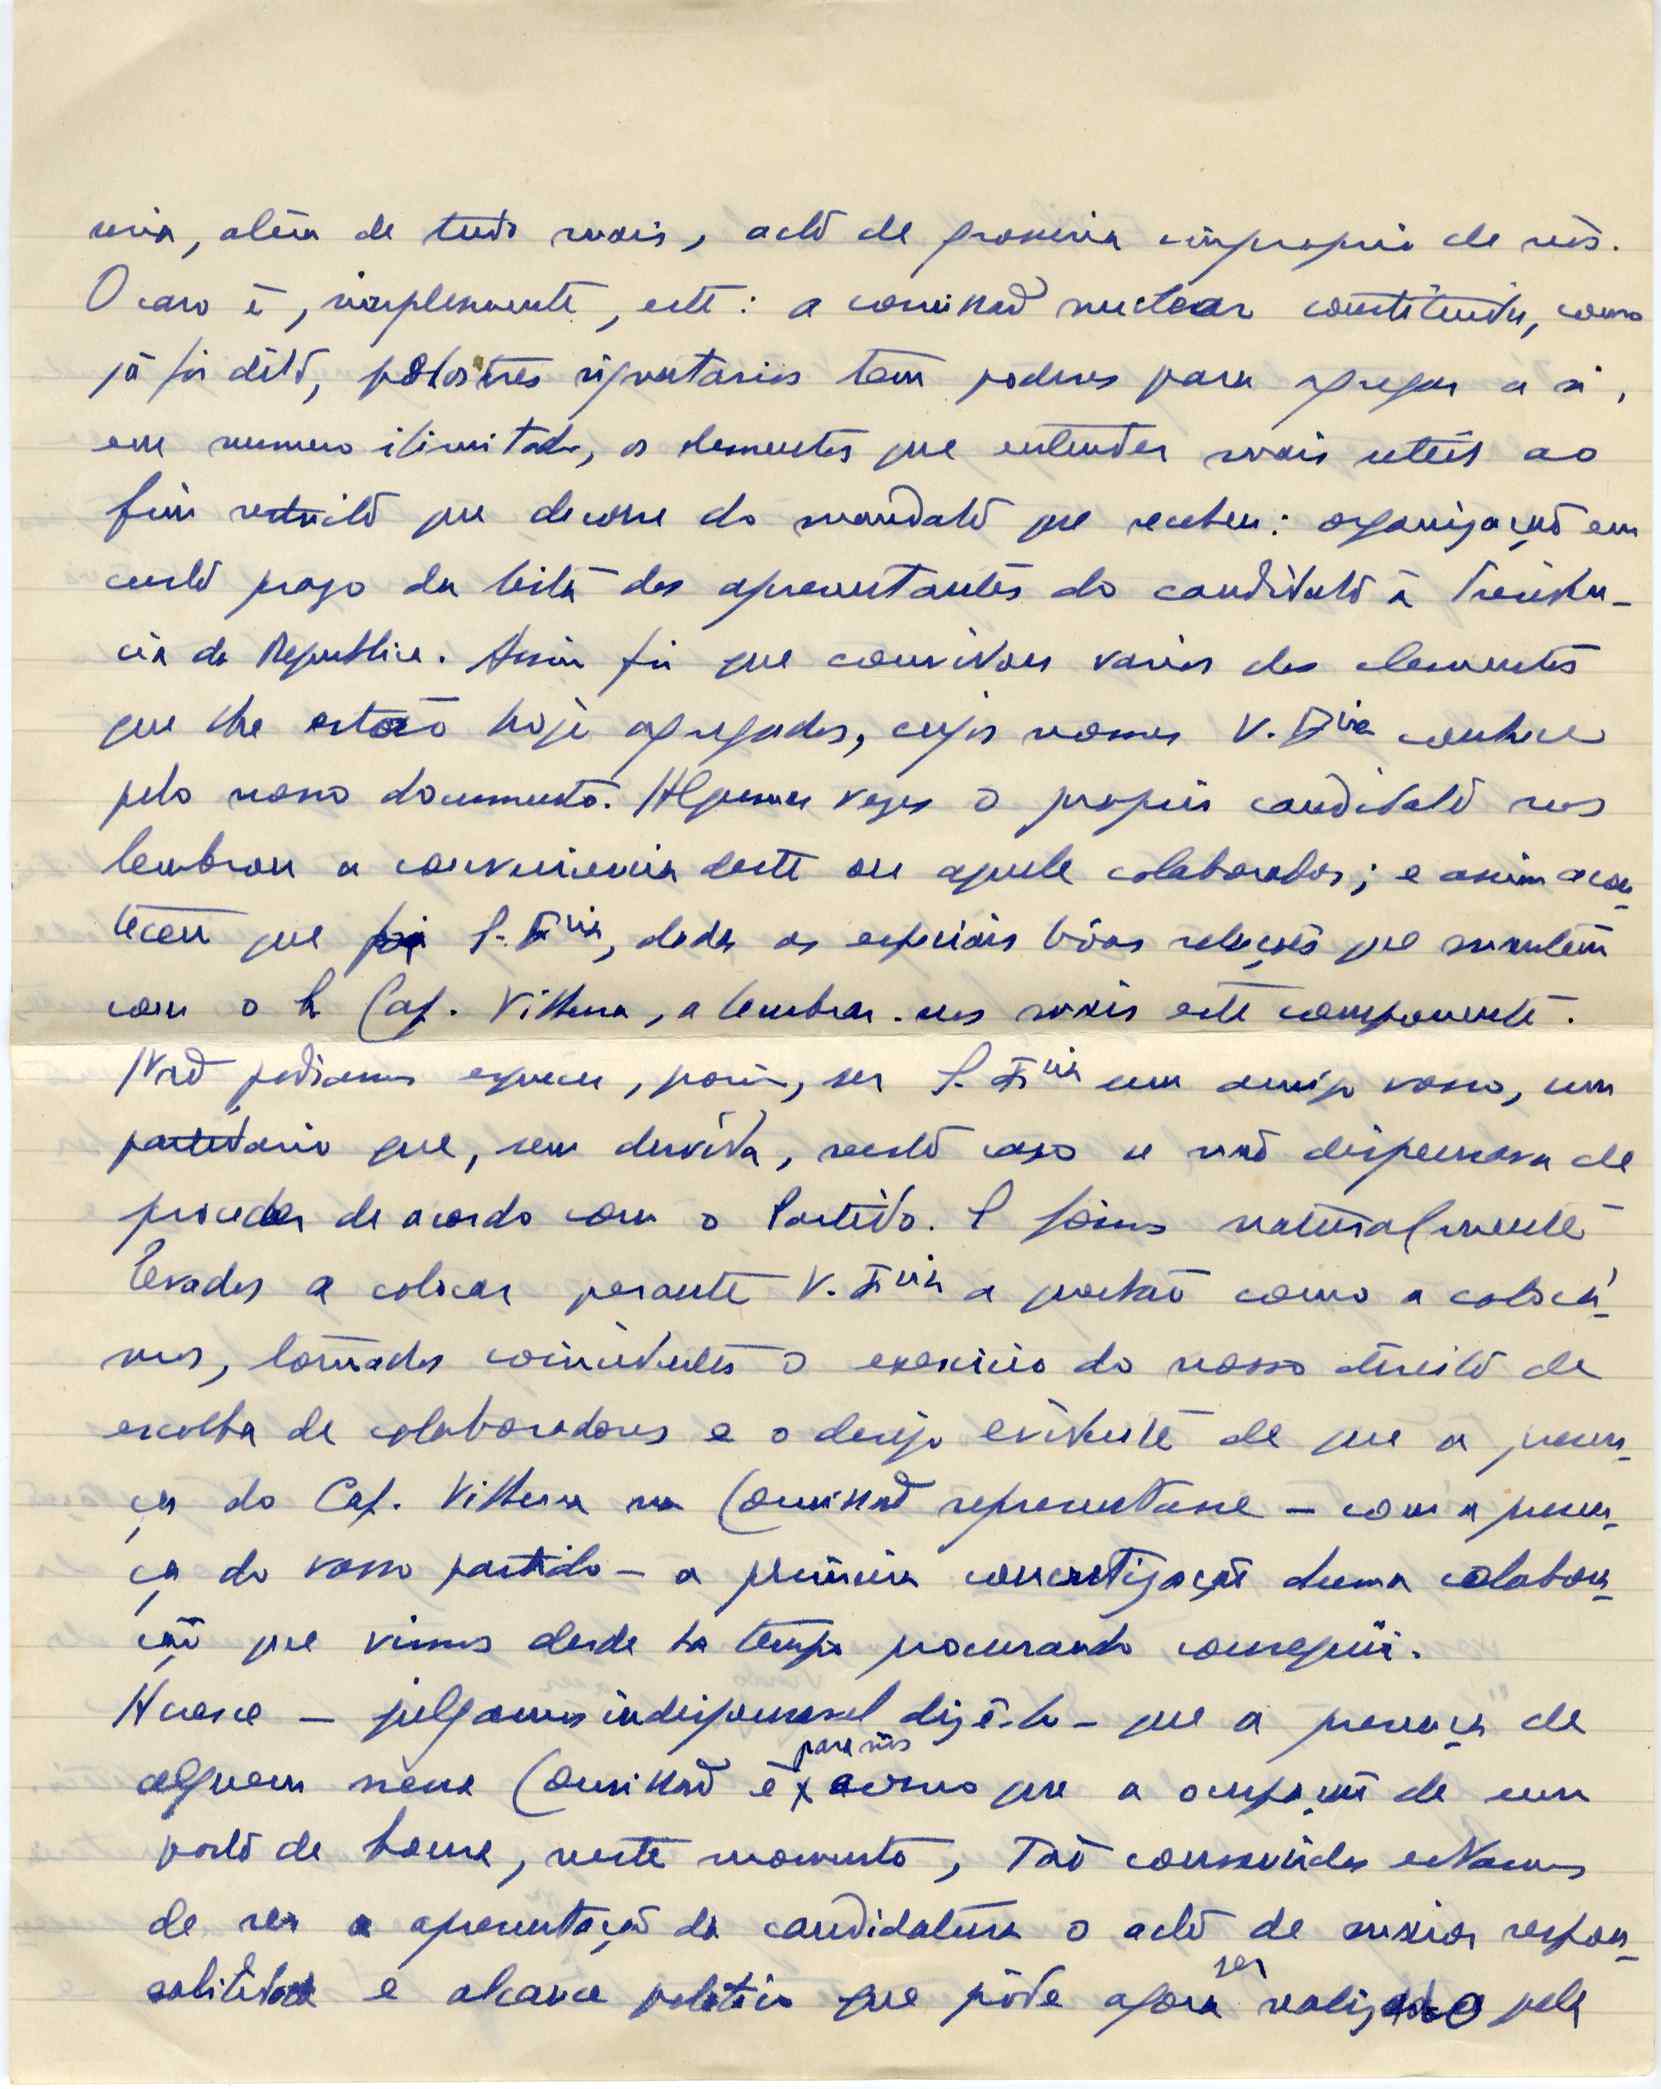 seria, além de tudo mais, acto de groseria improprio de nós.
O caso é, simplesmente, este: a comissão nuclear constituida, como
já foi dito, pelos tres signatarios tem poderes para agregar a si,
em numero ilimitado, os elementos que entender mais uteis ao
fim restricto que decorre do mandato que recebeu: organização em
curto prazo da lista dos apresentantes do candidato á Presiden-
cia da Republica. Assim foi que convidou varios dos elementos
que lhe estão hoje agregados, cujos nomes V. Exia conhece
pelo nosso documento. Algumas vezes o proprio candidato nos
lembrou a conveniencia deste ou aquele colaborador; e assim acon-
teceu que foi S. Exia, dadas as especiais bôas relações que mantém
com o Sr Cap. Vilhena, a lembrar-nos mais este componente.
Não podiamos esquecer, porém, ser S. Exia um amigo vosso, um
partidario que, sem duvida, neste caso se não dispensava de
proceder de acordo com o Partido. E fômos naturalmente
levados a colocar perante V. Exia a questão como a colocá-
mos, tornados coincidentes o exercicio do nosso direito de
escolha de colaboradores e o desejo evidente de que a presen-
ça do Cap. Vilhena na Comissão representasse - com a presen-
ça do vosso partido - a primeira concretização duma colabora-
ção que vimos desde ha tempo procurando conseguir.
Acresce - julgamos indispensavel dizê-lo - que a presença de
alguem nessa Comissão é para nós como que a ocupação de um
posto de honra, neste momento, Tão convencidos estamos
de ser a apresentação da candidatura o acto de maior respon-
sabilidade e alcance politico que póde agora ser realizado pela